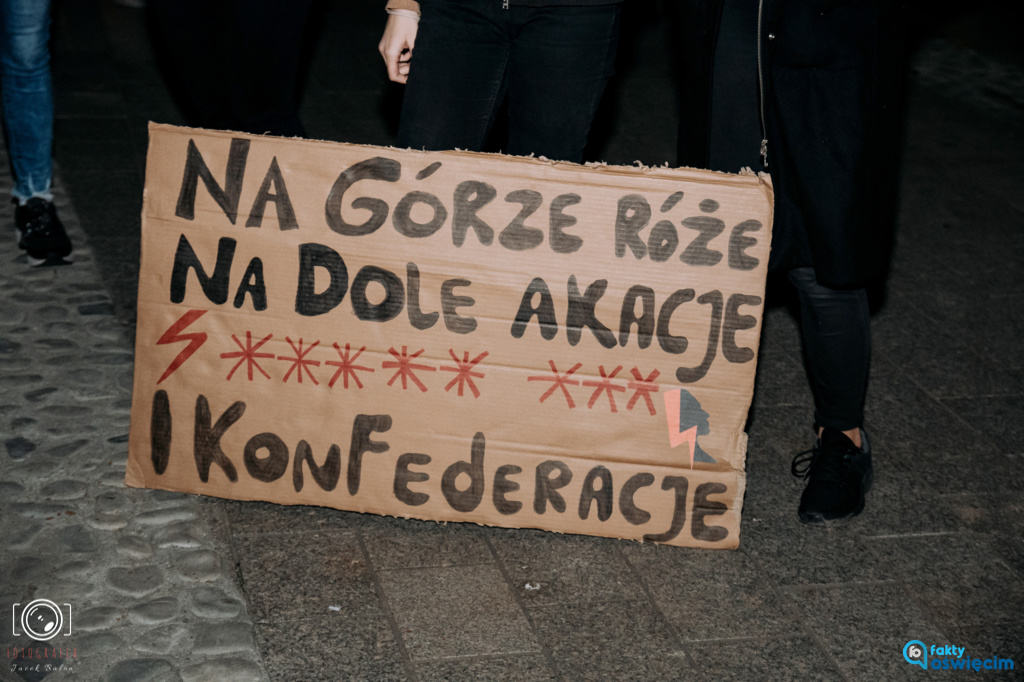 NA GÓRZE RÓŻE
NA DOLE AKACJE
***** ***
I KONFEDERACJE
FOTOGRAFIA
fakty
oświęcim